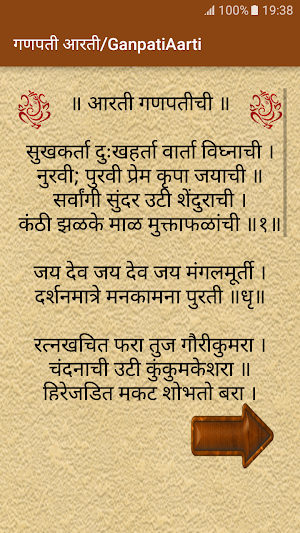 100% 19:38
गणपती आरती/GanpatiAarti
॥ आरती गणपतीची ॥
सुखकर्ता दुःखहर्ता वार्ता विघ्नाची ।
नुरवी; पुरवी प्रेम कृपा जयाची ॥
सर्वांगी सुंदर उटी शेंदुराची ।
कंठी झळके माळ मुक्ताफळांची ॥१॥
जय देव जय देव जय मंगलमूर्ती ।
दर्शनमात्रे मनकामना पुरती ॥धृ॥
रत्नखचित फरा तुज गौरीकुमरा ।
चंदनाची उटी कुंकुमकेशरा ॥
हिरेजडित मकट शोभतो बरा ।